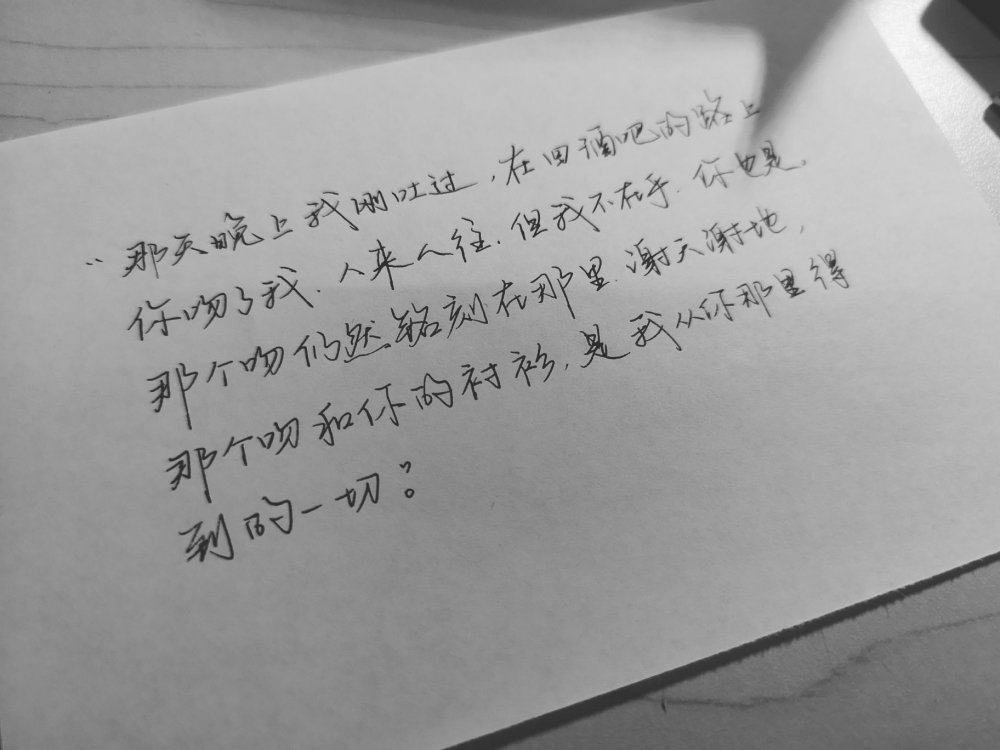 “那天晚上我刚吐过,在回酒吧的路上
你吻了我.人来人往.但我不在乎.你也是.
那个吻仍然铭刻在那里.谢天谢地,
那个吻和你的衬衫,是我从你那里得
到的一切.”